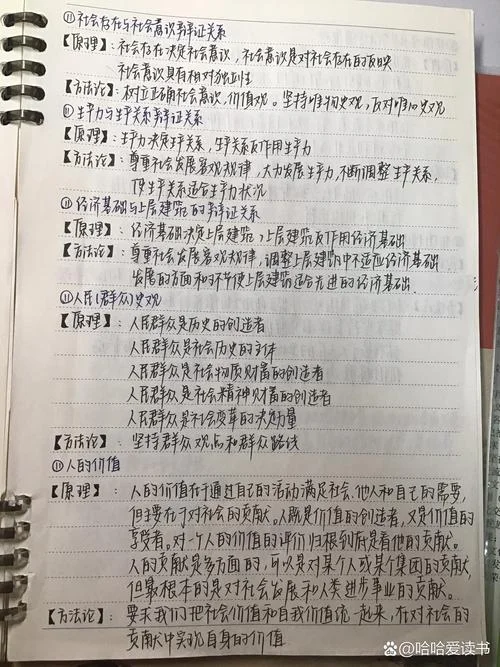 ⑪社会存在与社会意识辩证关系
【原理】：社会存在决定社会意识，社会意识是对社会存在的反映
社会意识具有相对独立性
【方法论】：树立正确社会意识，价值观。坚持唯物史观，反对唯心史观
⑪生产力与生产关系辩证关系
【原理】：生产力决定生产关系，生产关系反作用生产力
【方法论】：尊重社会发展客观规律，大力发展生产力，不断调整生产关系，
使生产关系适合生产力状况
⑪经济基础与上层建筑的辩证关系
【原理】：经济基础决定上层建筑，上层建筑反作用经济基础
【方法论】：尊重社会发展客观规律，调整上层建筑中不适应经济基础
发展的方面和环节使上层建筑适合先进的经济基础
⑪人民(群众)史观
【原理】：人民群众是历史的创造者
人民群众是社会历史的主体
人民群众是社会物质财富的创造者
人民群众是社会精神财富的创造者
人民群众是社会变革的决定力量
【方法论】：坚持群众观点和群众路线
⑪人的价值
【原理】：人的价值在于通过自己的活动满足社会、他人和自己的需要，
但主要在于对社会的贡献。人既是价值的创造者，又是价值的
享受者。对一个人的价值的评价归根到底是看他的贡献。
人的贡献是多方面的，可以是对某个人或某个集团的贡献，
但最根本的是对社会发展和人类进步事业的贡献。
【方法论】：要求我们把社会价值和自我价值统一起来，在对社会的
贡献中实现自身的价值
@哈哈爱读书